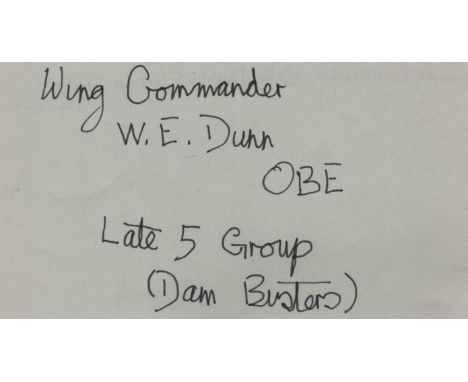 Wing Commander
W. E. Dunn
OBE
Late 5 Group
(Dam Busters)